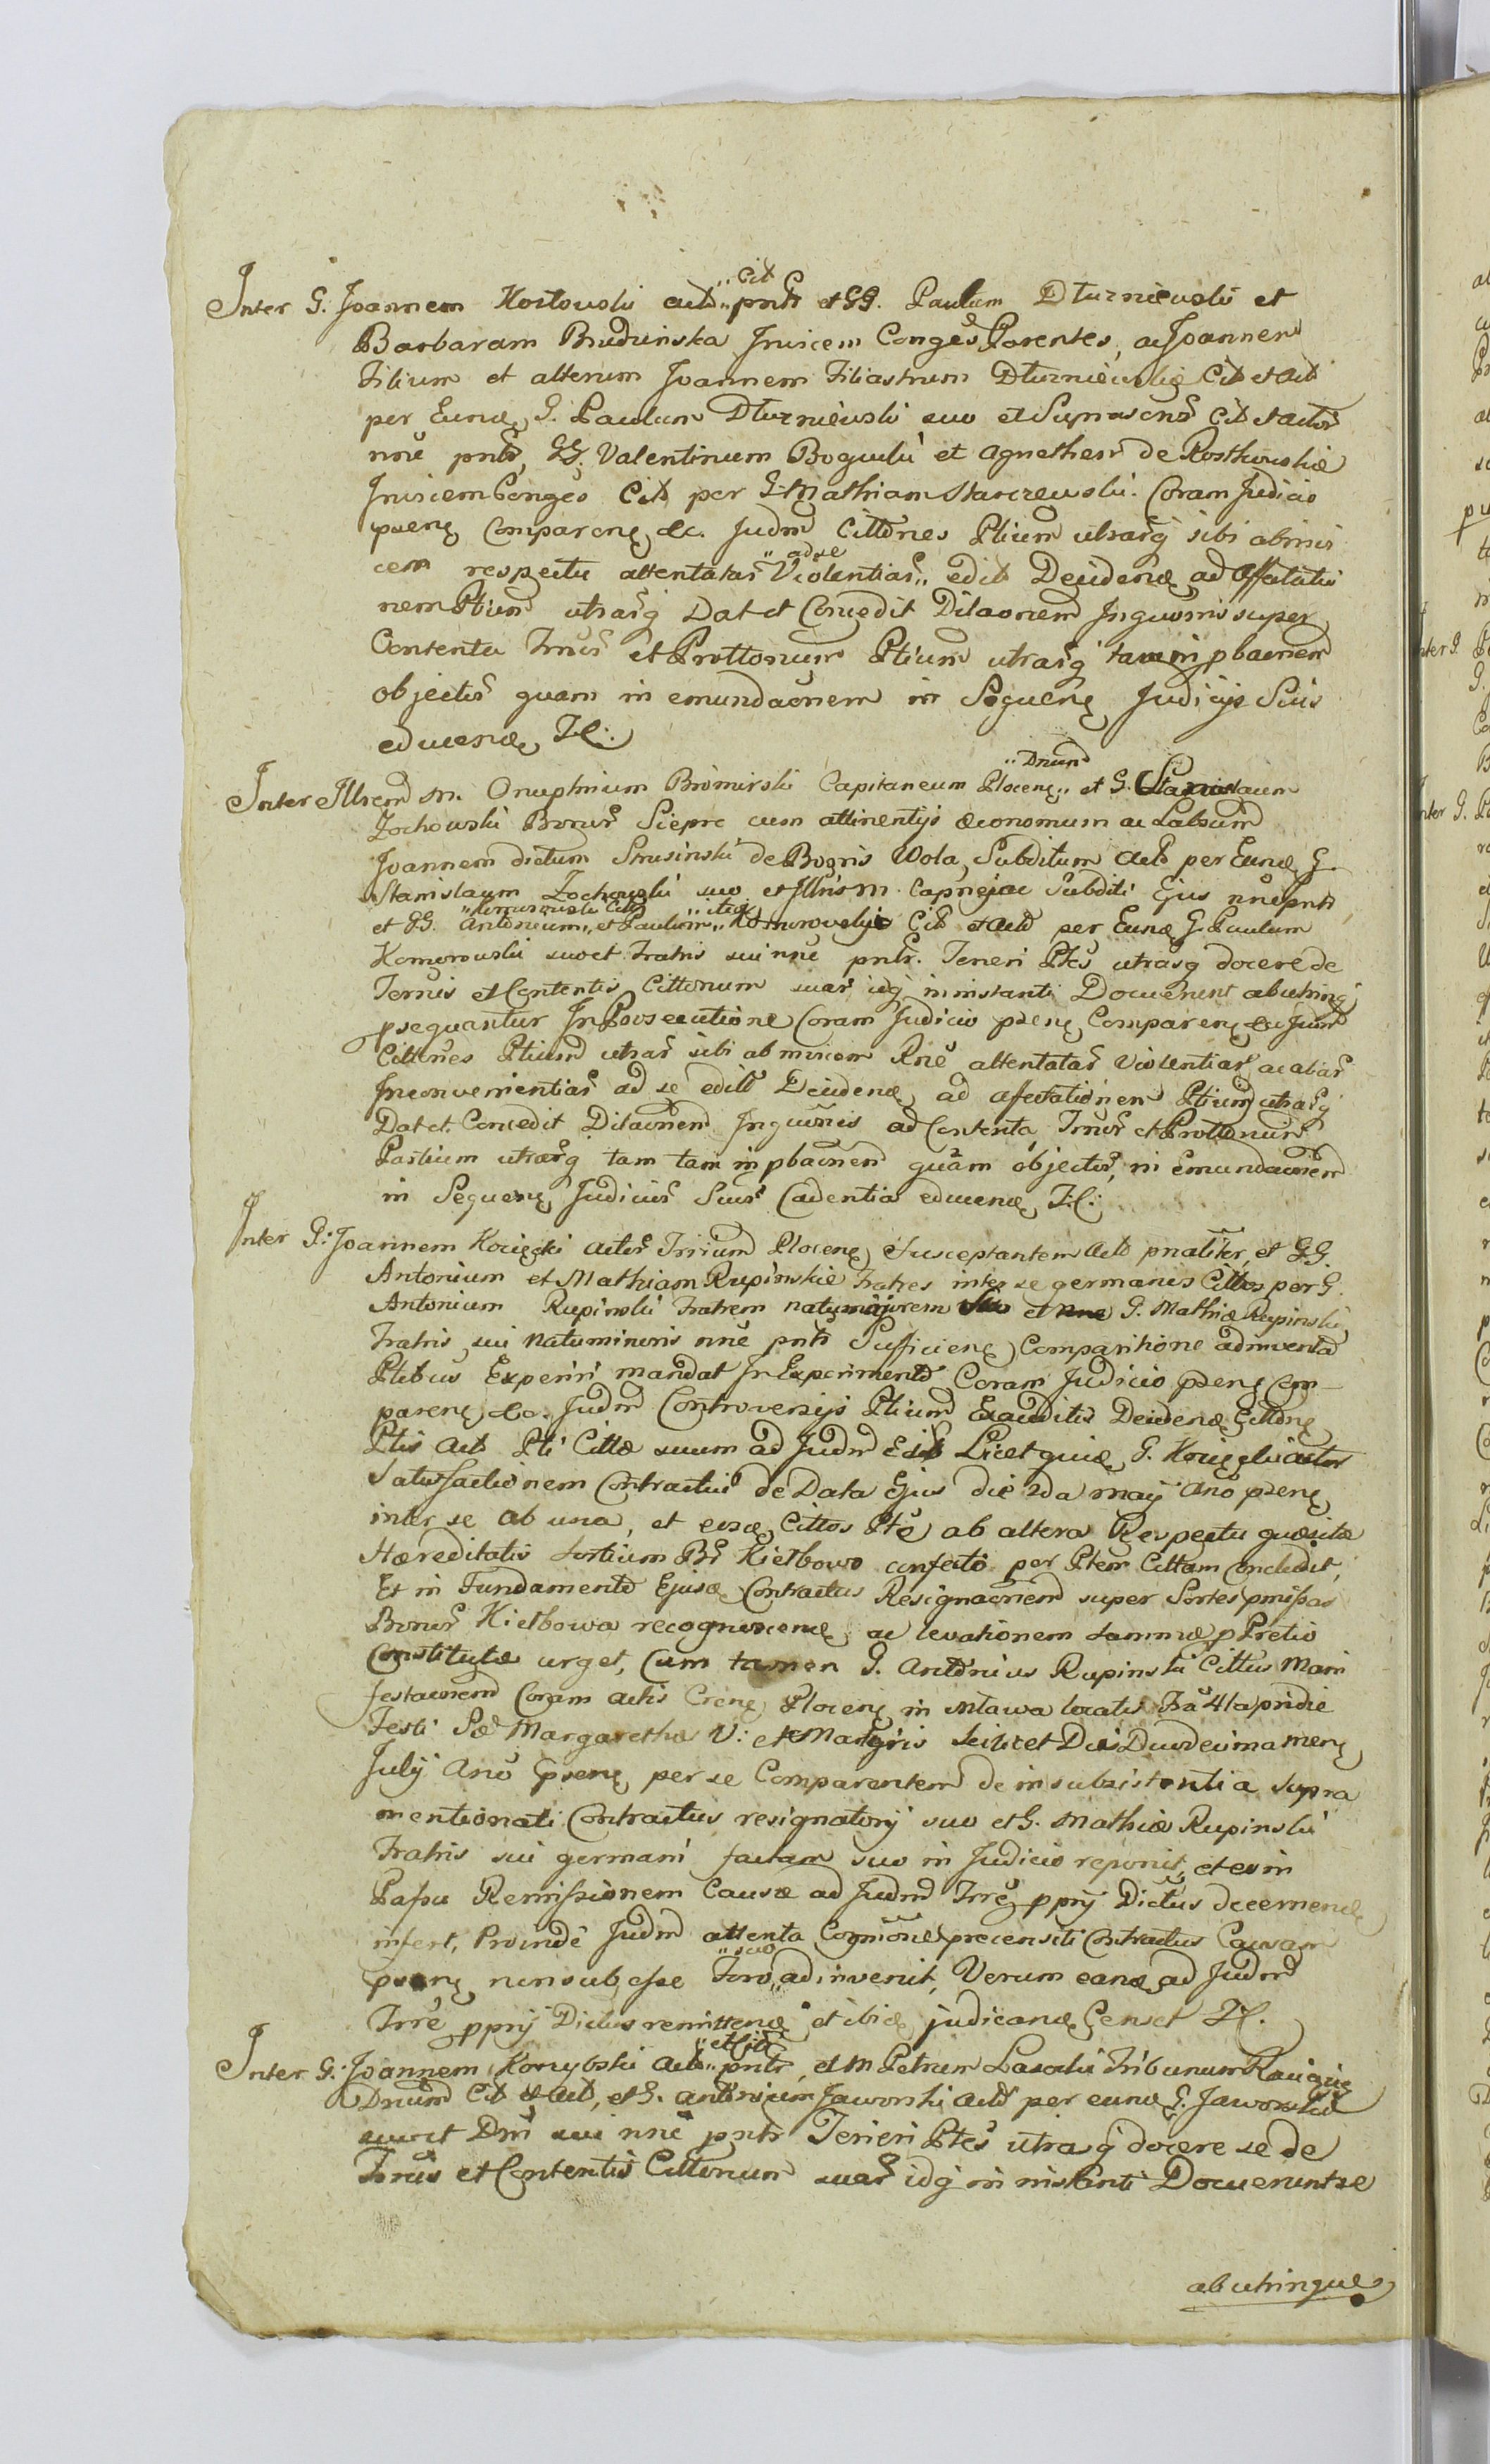 Inter G. Joannem Kostowski actō „Cit pntr et GG. Paulum Dłużniewski et
Barbaram Brudzinska Invicem Conges Parentes, ac Joannem
Filium et alterum Joannem Filiastrum Dłużniewskie Cit et Act
per Eund G. Paulum Dłużniewski suo et Supra Cit et Actor
nne pntr, GG. Valentinum Bogucki et Agnethem de Rostkowskie
Invicem Conges Cit per G. Mathiam Starczewski. Coram Judicio
psens Comparens &c. Judm Cittones Ptium utrasq sibi abinvi
cem respectu attentatar „ad se Violentiar„ edit Decidend ad Affectatio
nem Ptium utrarq Dat et Concedit Dilaonem Inquonis super
Contenta Trnor et Prottonum Ptium utrarq tam in pbaonem
objector quam in emundaonem in Sequens Judicijs Suis
educend Il:
Inter Illrem M. Onuphrium Bromirski Capitaneum Plocens „Dnum et G. Stanislaum
Zochowski Bonor Sieprc cum attinentijs Œconomum ac Labsum
Joannem dictum Strusinski de Bogris Wola Subditum Act per Eund G.
Stanislaum Zochowski suo et Illris M. Capnej ac Subditi Ejus nne pntr
et GG. Antonium „Komorowski Citt et Paulum „itoq Komorovskje Cit et Act per Eund G. Paulum
Komorowski suo et Fratris sui nne pntr. Teneri Ptes utrasq docere de
Termis et Contentis Cittonum suar idq in instanti Docuerunt abutrinq
psequantur In Prosecutione Coram Judicio psens Comparens &c Judm
Cittones Ptium utrar sibi ab invicem Rne attentatar Violentiar ac aliar
Inconvenientiar ad se edit Decidend ad affectationem Ptium utrarq
Dat et Concedit Dilaonem Inquonis ad Contenta Trnor et Prottonum
Partium utrarq tam tam in pbaonem quam objector, in Emundaonem
in Sequens Judicijs Suis Cadentia educend Il:
Inter G: Joannem Kocięcki Actor Trrium Plocens Susceptantem Act pnaliter, et GG.
Antonium et Mathiam Rupinskie Fratres inter se germanos Cittos per G.
Antonium Rupinski Fratrem natu majorem suo et nne G. Mathiæ Rupinski
Fratris sui natu minoris nne pntr Sufficiens Comparitione adinventa
Ptibus Experiri mandat In Experimento Coram Judicio psens Com-
parens &c. Judm Controversijs Ptium Exauditis Decidend Cittons
Ptis Act Pti Cittæ suum ad Judm Edit Licet quid G. Kocięcki actor
Satisfactionem Contractui de Data Ejus die 2da Maij Ano psens
inter se ab una, et eosd Cittos Pte ab altera Respectu quæsitæ
Hæreditatis Sortium Br Kiełbowo confecto per Ptem Cittam Concludit,
Et in Fundamento Ejusd Contractus Resignaonem super Sortes pmissas
Bonor Kiełbowa recognoscend ac levationem summæ p Pretio
Constitutæ urget, Cum tamen G. Antonius Rupinski Cittus Mani
festaonem Coram Actis Crens Plocens in Mława locatis Fra 4ta pridie
Festi Sæ Margarethæ V: et Martyris scilicet Die Duodecima mens
Julij Ano psens per se Comparentem de insubsistentia supra
mentionati Contractus resignatorij suo et G. Mathiæ Rupinski
Fratris sui germani factam suo in Judicio reponit, et eo in
Passu Remissionem Causæ ad Judm Trrē pprij Dictus decernend
infert, Proinde Judm attenta Cognitione precensiti Contractus Causam
psens non subesse Foro „suo adinvenit, Verum eand ad Judm
Trre pprij Dictus remittend et ibid judicand Censet Il.
Inter G: Joannem Korzybski Act „et Cit pntr, et M Petrum Lasocki Tribunum Ravens
Dnum Cit et Act, et G. Antonium Jaworski Act per eund G. Jaworski
suo et Dni sui nne pntr Teneri Ptes utrasq docere se de
Trnis et Contentis Cittonum suar idq in instanti Docuerunt se
ab utrinque